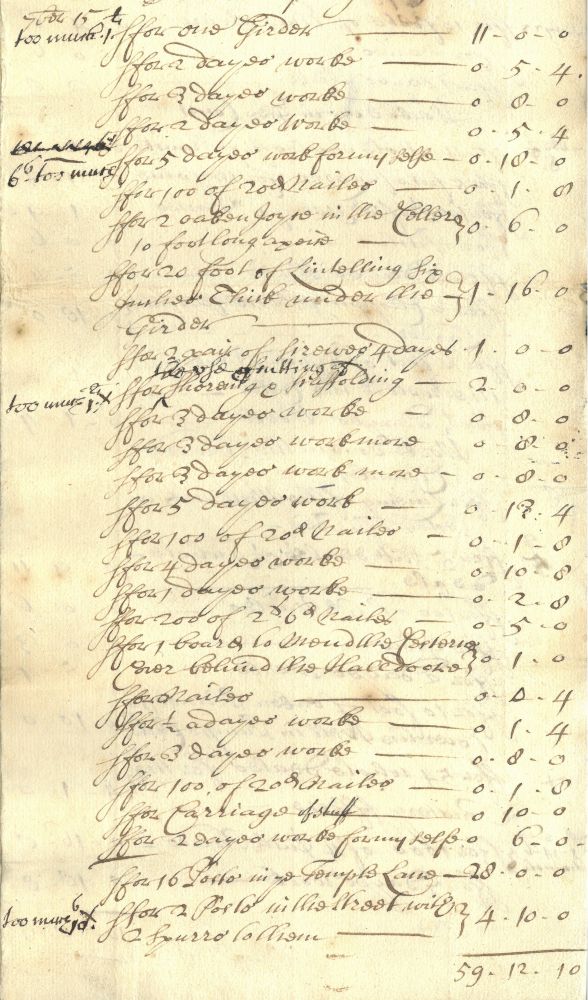 too much 1l ffor one Girder 11 - 0 - 0
ffor 2 dayes worke 0 . 5 . 4 .
ffor 3 dayes worke 0 . 8 . 0
ffor 2 dayes Worke 0 . 5 . 4
ffor 5 dayes work for my selfe - 0 . 18 . 0
6s too much
ffor 100 of 20d Nailes 0 . 1 . 8
ffor 2 oaken Joyce in the Celler
10 foot long a peice 0 . 6 . 0
ffor 20 foot of Lintelling six
Inches Thick under the 1 - 16 - 0
Girder
ffor 2 pair of screwes 4 dayes . 1 . 0 - 0
the use &
too much 1l ffor Shoreing & scaffolding 2 . 0 - 0
ffor 3 dayes worke 0 . 8 - 0
ffor 3 dayes work more 0 - 8 . 0
ffor 3 dayes work more 0 - 8 - 0
ffor 5 dayes work 0 - 13 . 4
ffor 100 of 20d Nailes 0 - 1 - 8
ffor 4 dayes worke 0 . 10 . 8
ffor 1 dayes worke 0 - 2 . 8
ffor 200 of 2s 6d Nailes 0 . 5 - 0
ffor 1 board to Mend the
Over behind the Hall doore 0 . 1 . 0
ffor Nailes 0 . 0 . 4
ffor ½ a dayes worke 0 . 1 . 4
ffor 3 dayes worke 0 . 8 - 0
ffor 100 of 20d Nailes 0 . 1 . 8
ffor Carriage of stuff 0 10 - 0
ffor 2 dayes worke for my selfe 0 6 - 0 -
ffor 16 Posts in ye Temple Lane - 28 . 0 - 0
too much ffor 2 Posts in the street with
2 spurrs to them 4 . 10 - 0
59 . 12 . 10